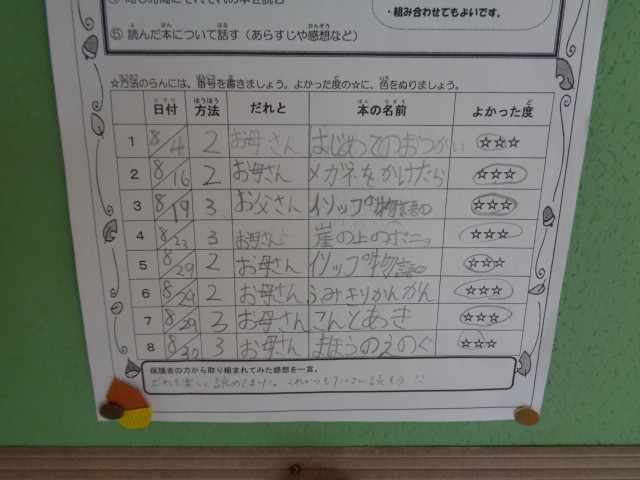 ・組み合わせてもよいです。
⑤ 読んだ本について話す（あらすじや感想など）
☆方法のらんには、番号を書きましょう。よかった度の☆に、色をぬりましょう。
日付 方法 だれと 本の名前 よかった度
1 8/4 2 お母さん はじめてのおつかい ☆☆☆
2 8/16 2 お母さん メガネをかけたら ☆☆☆
3 8/19 3 お父さん イソップ物語① ☆☆☆
4 8/23 3 お母さん 崖の上のポニョ ☆☆☆
5 8/29 2 お母さん イソップ物語 ☆☆☆
6 8/29 2 お母さん うみキリンかんかん ☆☆☆
7 8/29 3 お母さん こんとあき ☆☆☆
8 8/30 3 お母さん まほうのえのぐ ☆☆☆
保護者の方から取り組まれてみた感想を一言。
どれも楽しく読めました。これからもたくさん読もう!!